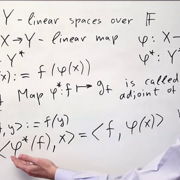 Y - linear spaces over 𝔽
X → Y - linear map φ :
φ* : Y*
(x) := f (φ(x))
Map φ* : f ↦ g_f is called
adjoint of
f, y> := f(y)
<φ*(f), x> = <f, φ(x)>